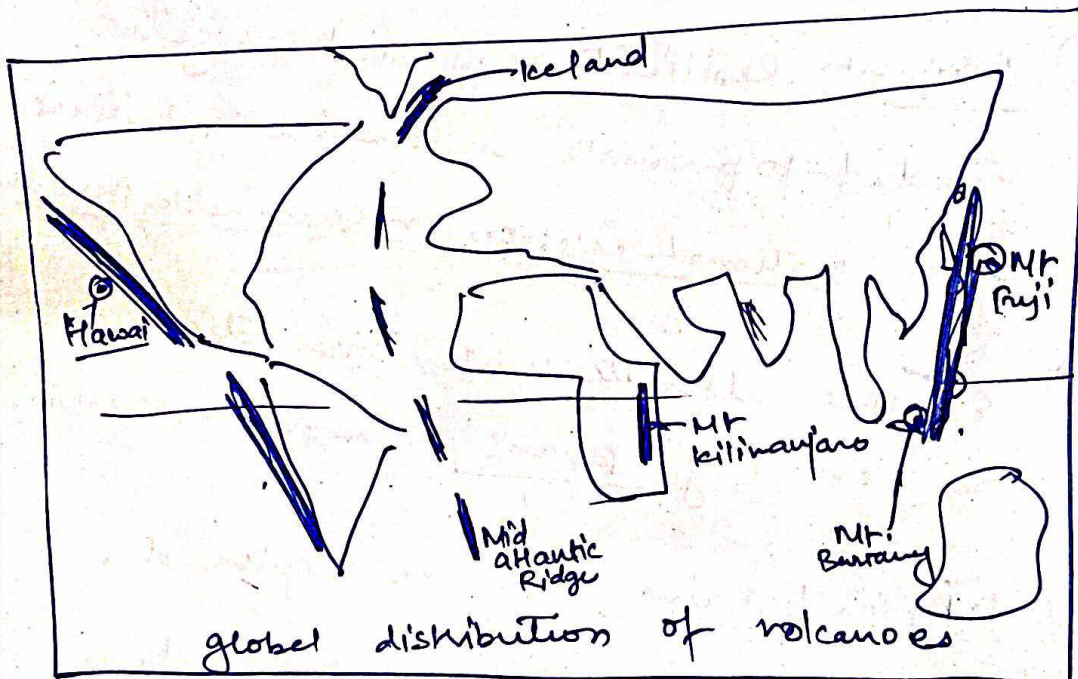 Iceland
Mt
Fuji
Hawai
Mt
Kilimanjaro
Mid
atlantic
Ridge
Mt.
global distribution of volcanoes